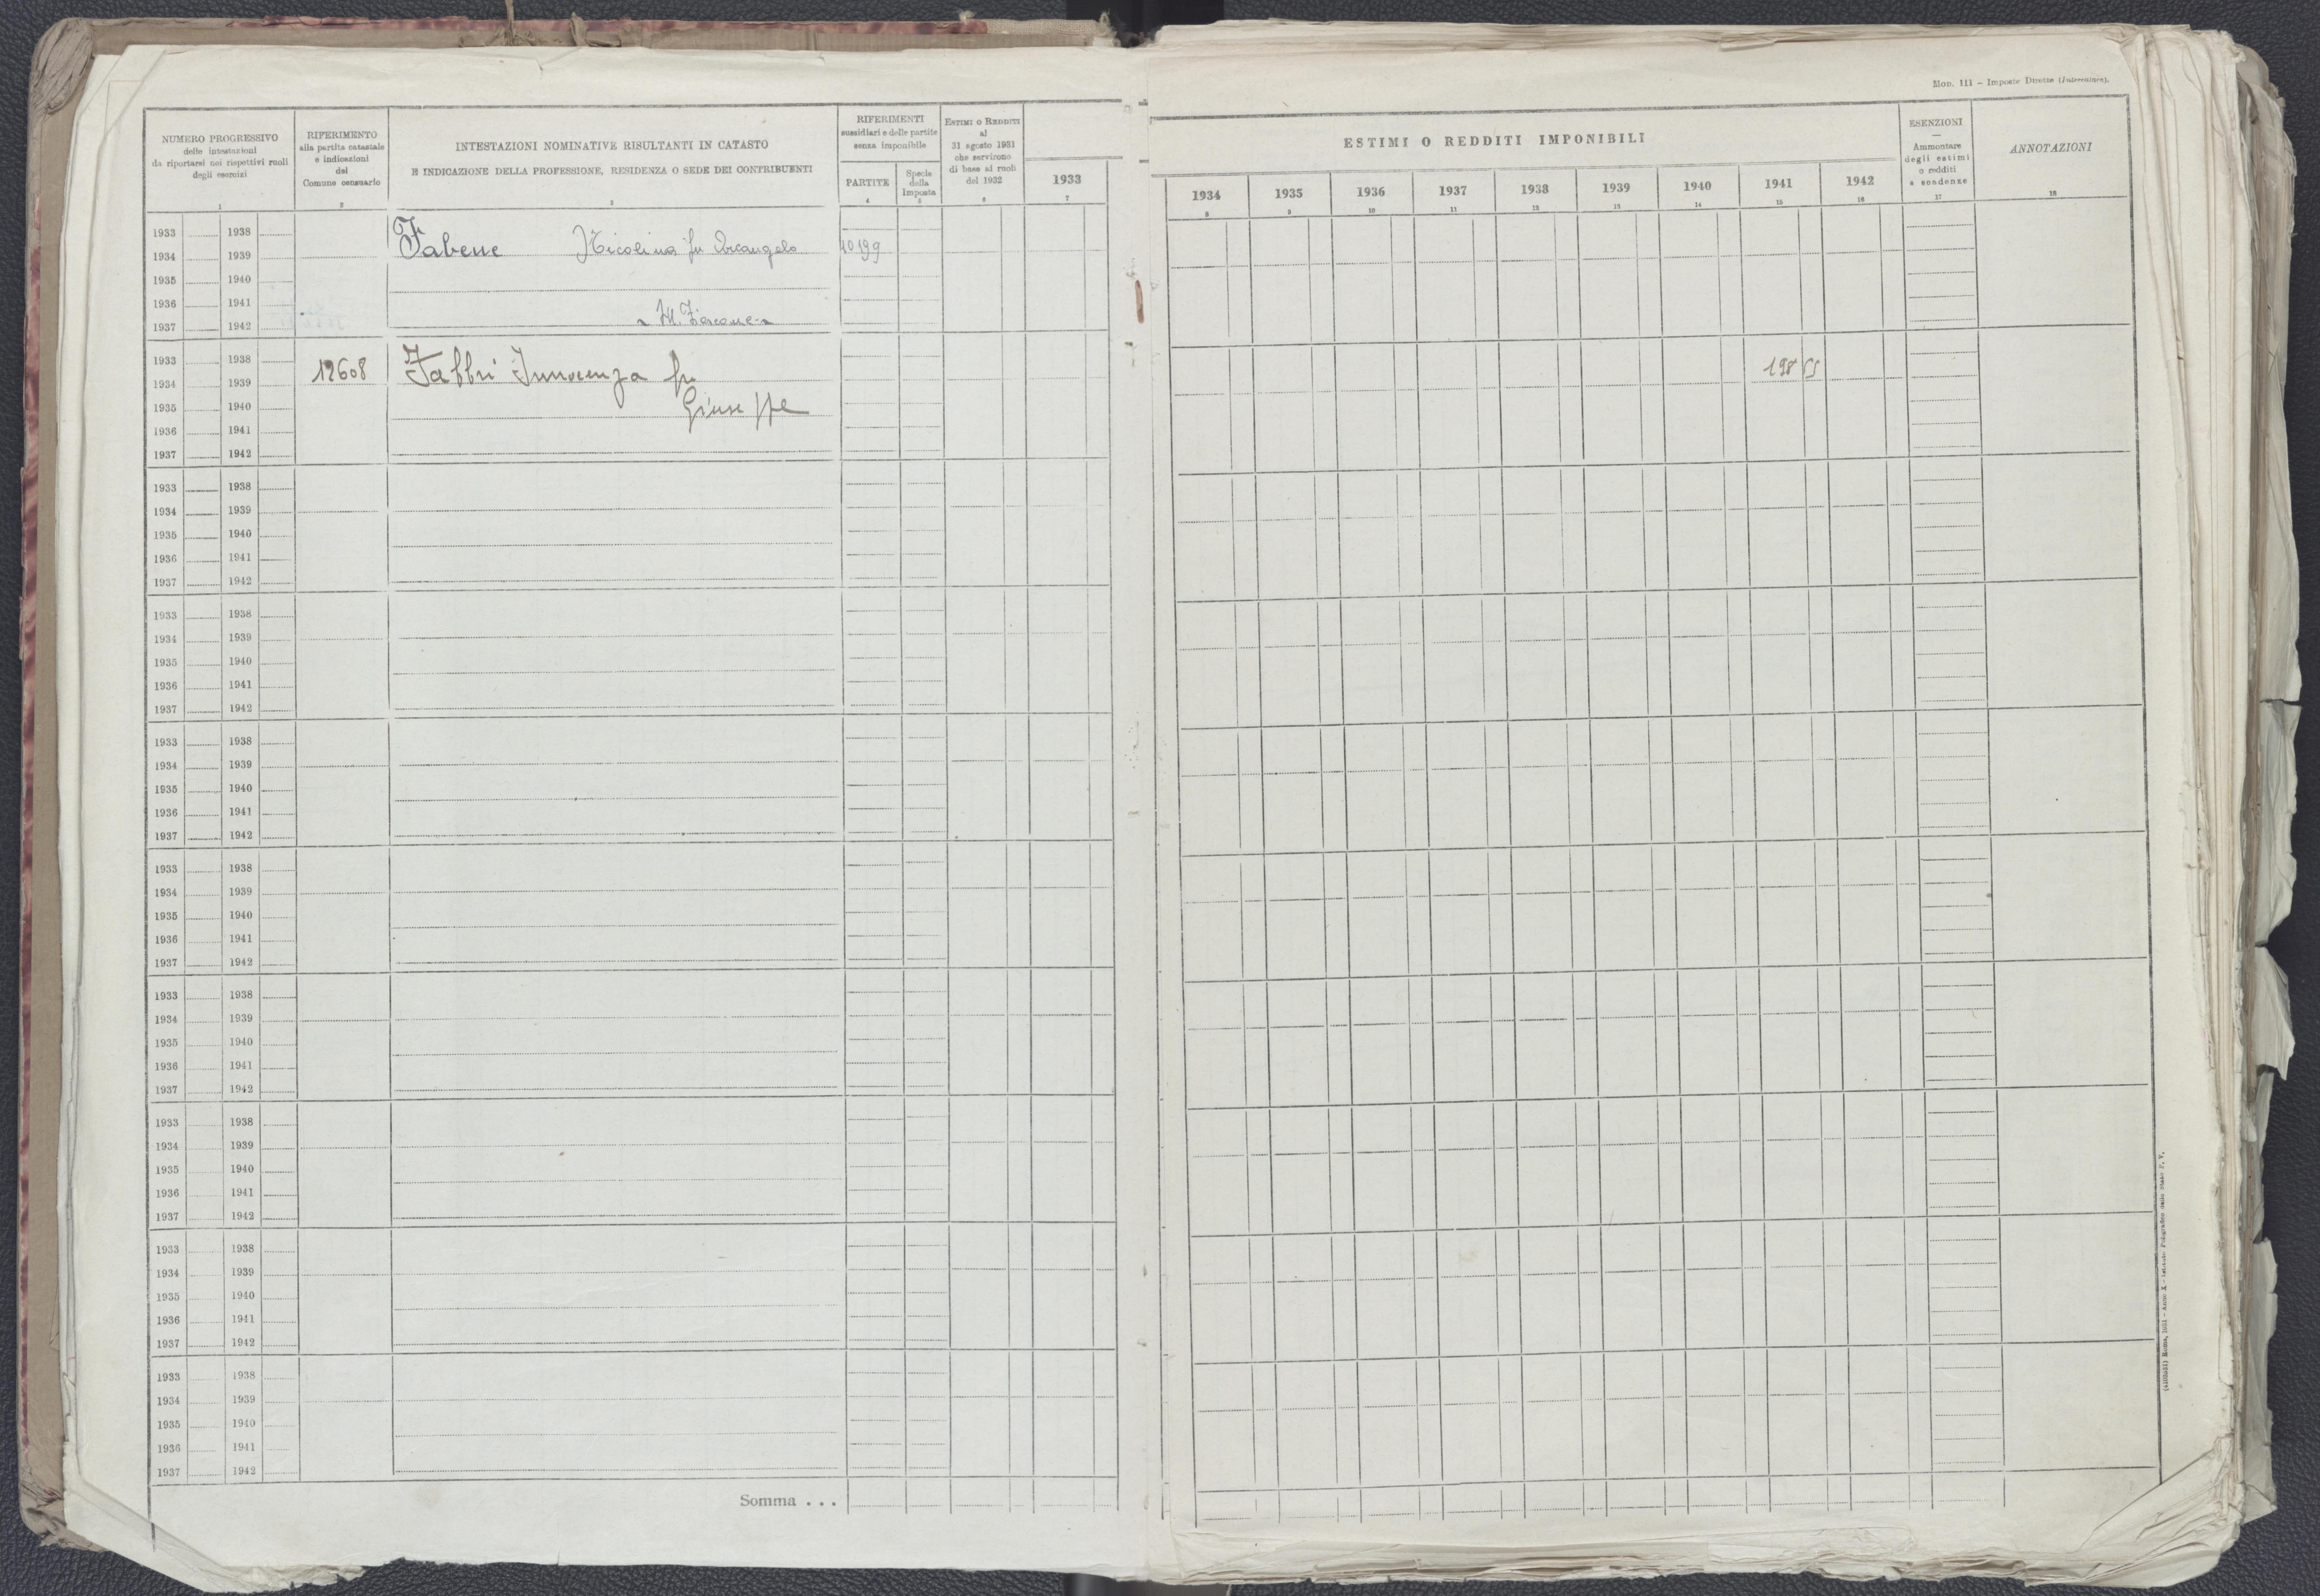 Mod. 111 – Imposte Dirette (Intercalare).
NUMERO PROGRESSIVO
delle intestazioni
da riportarsi nei rispettivi ruoli
degli esercizi
1
RIFERIMENTO
alla partita catastale
e indicazioni
del
Comune censuario
2
INTESTAZIONI NOMINATIVE RISULTANTI IN CATASTO
E INDICAZIONE DELLA PROFESSIONE, RESIDENZA O SEDE DEI CONTRIBUENTI
3
RIFERIMENTI
sussidiari e delle partite
senza imponibile
PARTITE
4
Specie
della
Imposta
5
ESTIMI O REDDITI
al
31 agosto 1931
che servirono
di base ai ruoli
del 1932
6
1933
7
ESTIMI O REDDITI IMPONIBILI
1934 1935 1936 1937 1938 1939 1940 1941 1942
8 9 10 11 12 13 14 15 16
ESENZIONI
—
Ammontare
degli estimi
o redditi
e scadenze
17
ANNOTAZIONI
18
1933 1938
Fabene Nicolina fu Arcangelo 10199
1934 1939
1935 1940
1936 1941
1937 1942
1933 1938
12608 Fabbri Innocenza fu
1934 1939
Giuseppe
1935 1940
1936 1941
1937 1942
1933 1938
1934 1939
1935 1940
1936 1941
1937 1942
1933 1938
1934 1939
1935 1940
1936 1941
1937 1942
1933 1938
1934 1939
1935 1940
1936 1941
1937 1942
1933 1938
1934 1939
1935 1940
1936 1941
1937 1942
1933 1938
1934 1939
1935 1940
1936 1941
1937 1942
1933 1938
1934 1939
1935 1940
1936 1941
1937 1942
1933 1938
1934 1939
1935 1940
1936 1941
1937 1942
1933 1938
1934 1939
1935 1940
1936 1941
1937 1942
Somma . . .